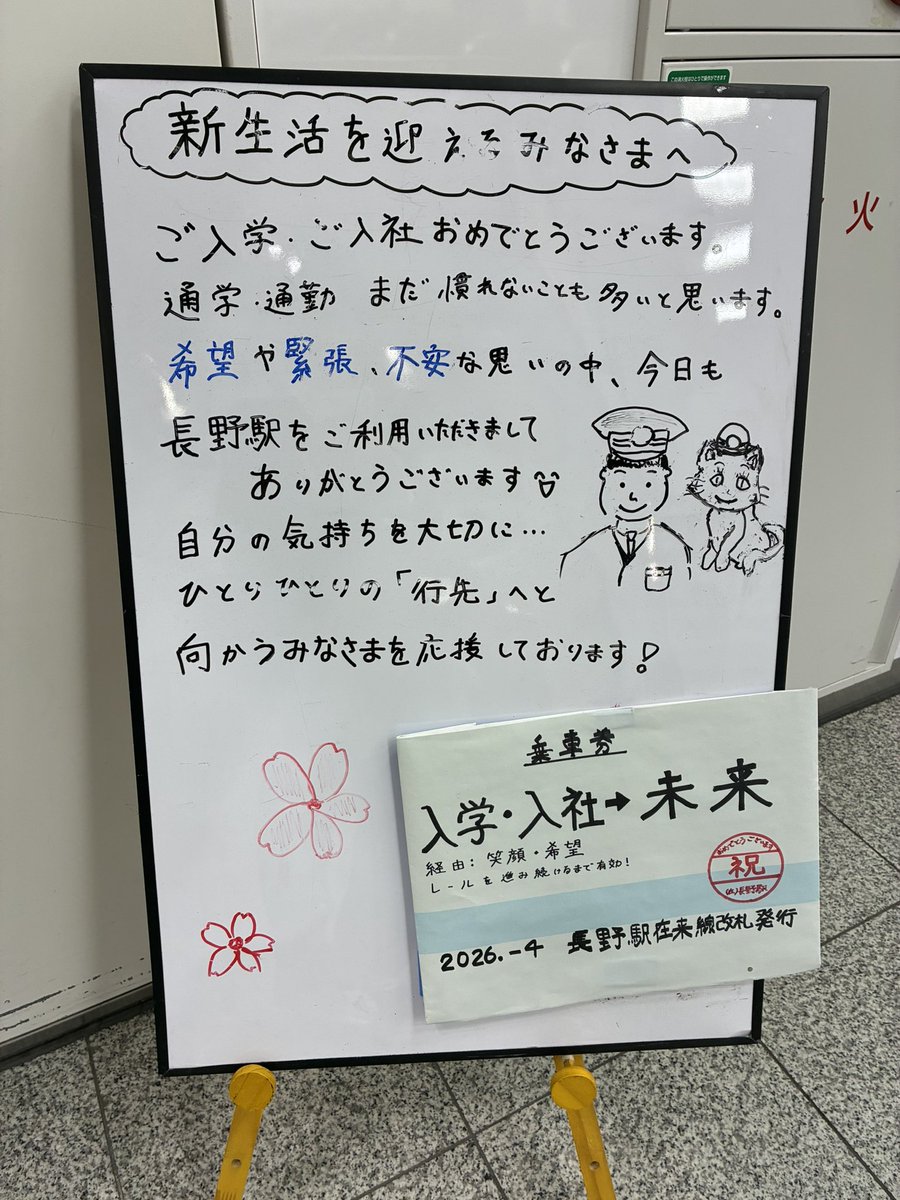 新生活を迎えるみなさまへ
ご入学・ご入社おめでとうございます。
通学・通勤 まだ慣れないことも多いと思います。
希望や緊張、不安な思いの中、今日も
長野駅をご利用いただきまして
ありがとうございます
自分の気持ちを大切に…
ひとりひとりの「行先」へと
向かうみなさまを応援しております!
乗車券
入学・入社→未来
経由:笑顔・希望
レールを進み続けるまで有効!
おめでとうございます
祝
2026.-4 長野駅在来線改札発行
この消火栓はひとりで操作ができます
火